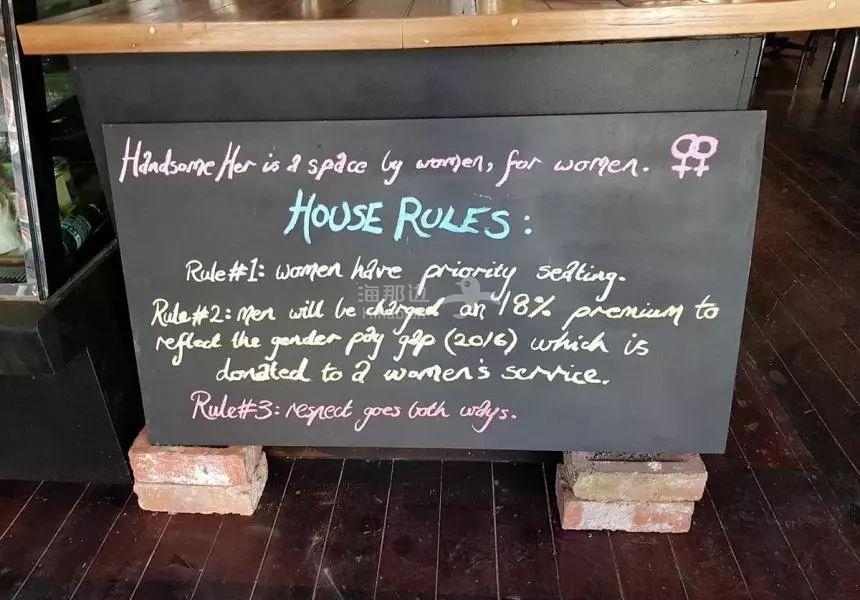 Handsome Her is a space by women, for women.
HOUSE RULES:
Rule#1: women have priority seating.
Rule#2: men will be charged an 18% premium to
reflect the gender pay gap (2016) which is
donated to a women's service.
Rule#3: respect goes both ways.
海那边